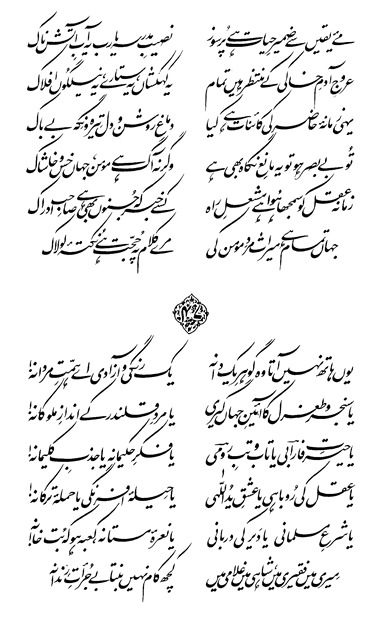 مے یقیں سے ضمیرِ حیات ہے پُرسوز نصیبِ مدرسہ یا رب یہ آبِ آتش ناک
عروجِ آدمِ خاکی کے منتظر ہیں تمام یہ کہکشاں یہ ستارے یہ نیلگوں افلاک
یہی زمانۂ حاضر کی کائنات ہے کیا دماغ روشن و دل تیرہ و نگہ بے باک
تُو بے بصر ہو تو یہ مانعِ نگاہ بھی ہے وگرنہ آگ ہے مومن جہاں خس و خاشاک
زمانہ عقل کو سمجھا ہوا ہے مشعلِ راہ کسے خبر کہ جنوں بھی ہے صاحبِ ادراک
جہاں تمام ہے میراث مردِ مومن کی مرے کلام پہ حجت ہے نکتۂ لولاک
یوں ہاتھ نہیں آتا وہ گوہرِ یک دانہ یک رنگی و آزادی اے ہمتِ مردانہ
یا سنجر و طغرل کا آئینِ جہاں گیری یا مردِ قلندر کے اندازِ ملوکانہ
یا حیرتِ فارابی یا تاب و تبِ رومی یا فکرِ حکیمانہ یا جذبِ کلیمانہ
یا عقل کی روباہی یا عشقِ یداللّٰہی یا حیلۂ افرنگی یا حملۂ ترکانہ
یا شرعِ مسلمانی یا دیر کی دربانی یا نعرۂ مستانہ کعبہ ہو کہ بت خانہ
میری میں فقیری میں شاہی میں غلامی میں کچھ کام نہیں بنتا بے جرأتِ رندانہ